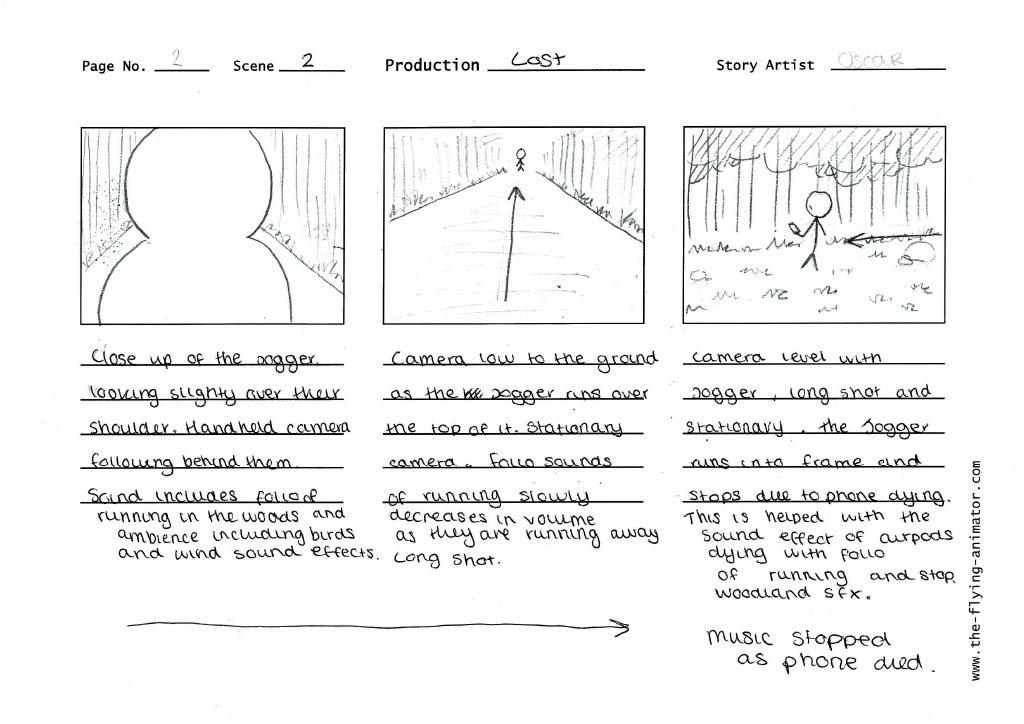 Page No. 2 Scene 2 Production Lost Story Artist Oscar
Close up of the Jogger.
looking slighty over their
shoulder. Handheld camera
following behind them.
Sound includes folio of
running in the woods and
ambience including birds
and wind sound effects.
Camera low to the ground
as the Jogger runs over
the top of it. Stationary
camera. Folio sounds
of running slowly
decreases in volume
as they are running away
Long Shot.
camera level with
Jogger, long shot and
stationary. the Jogger
runs into frame and
stops due to phone dying.
This is helped with the
sound effect of airpods
dying with folio
of running and stop.
woodland sfx.
Music stopped
as phone died.
www.the-flying-animator.com